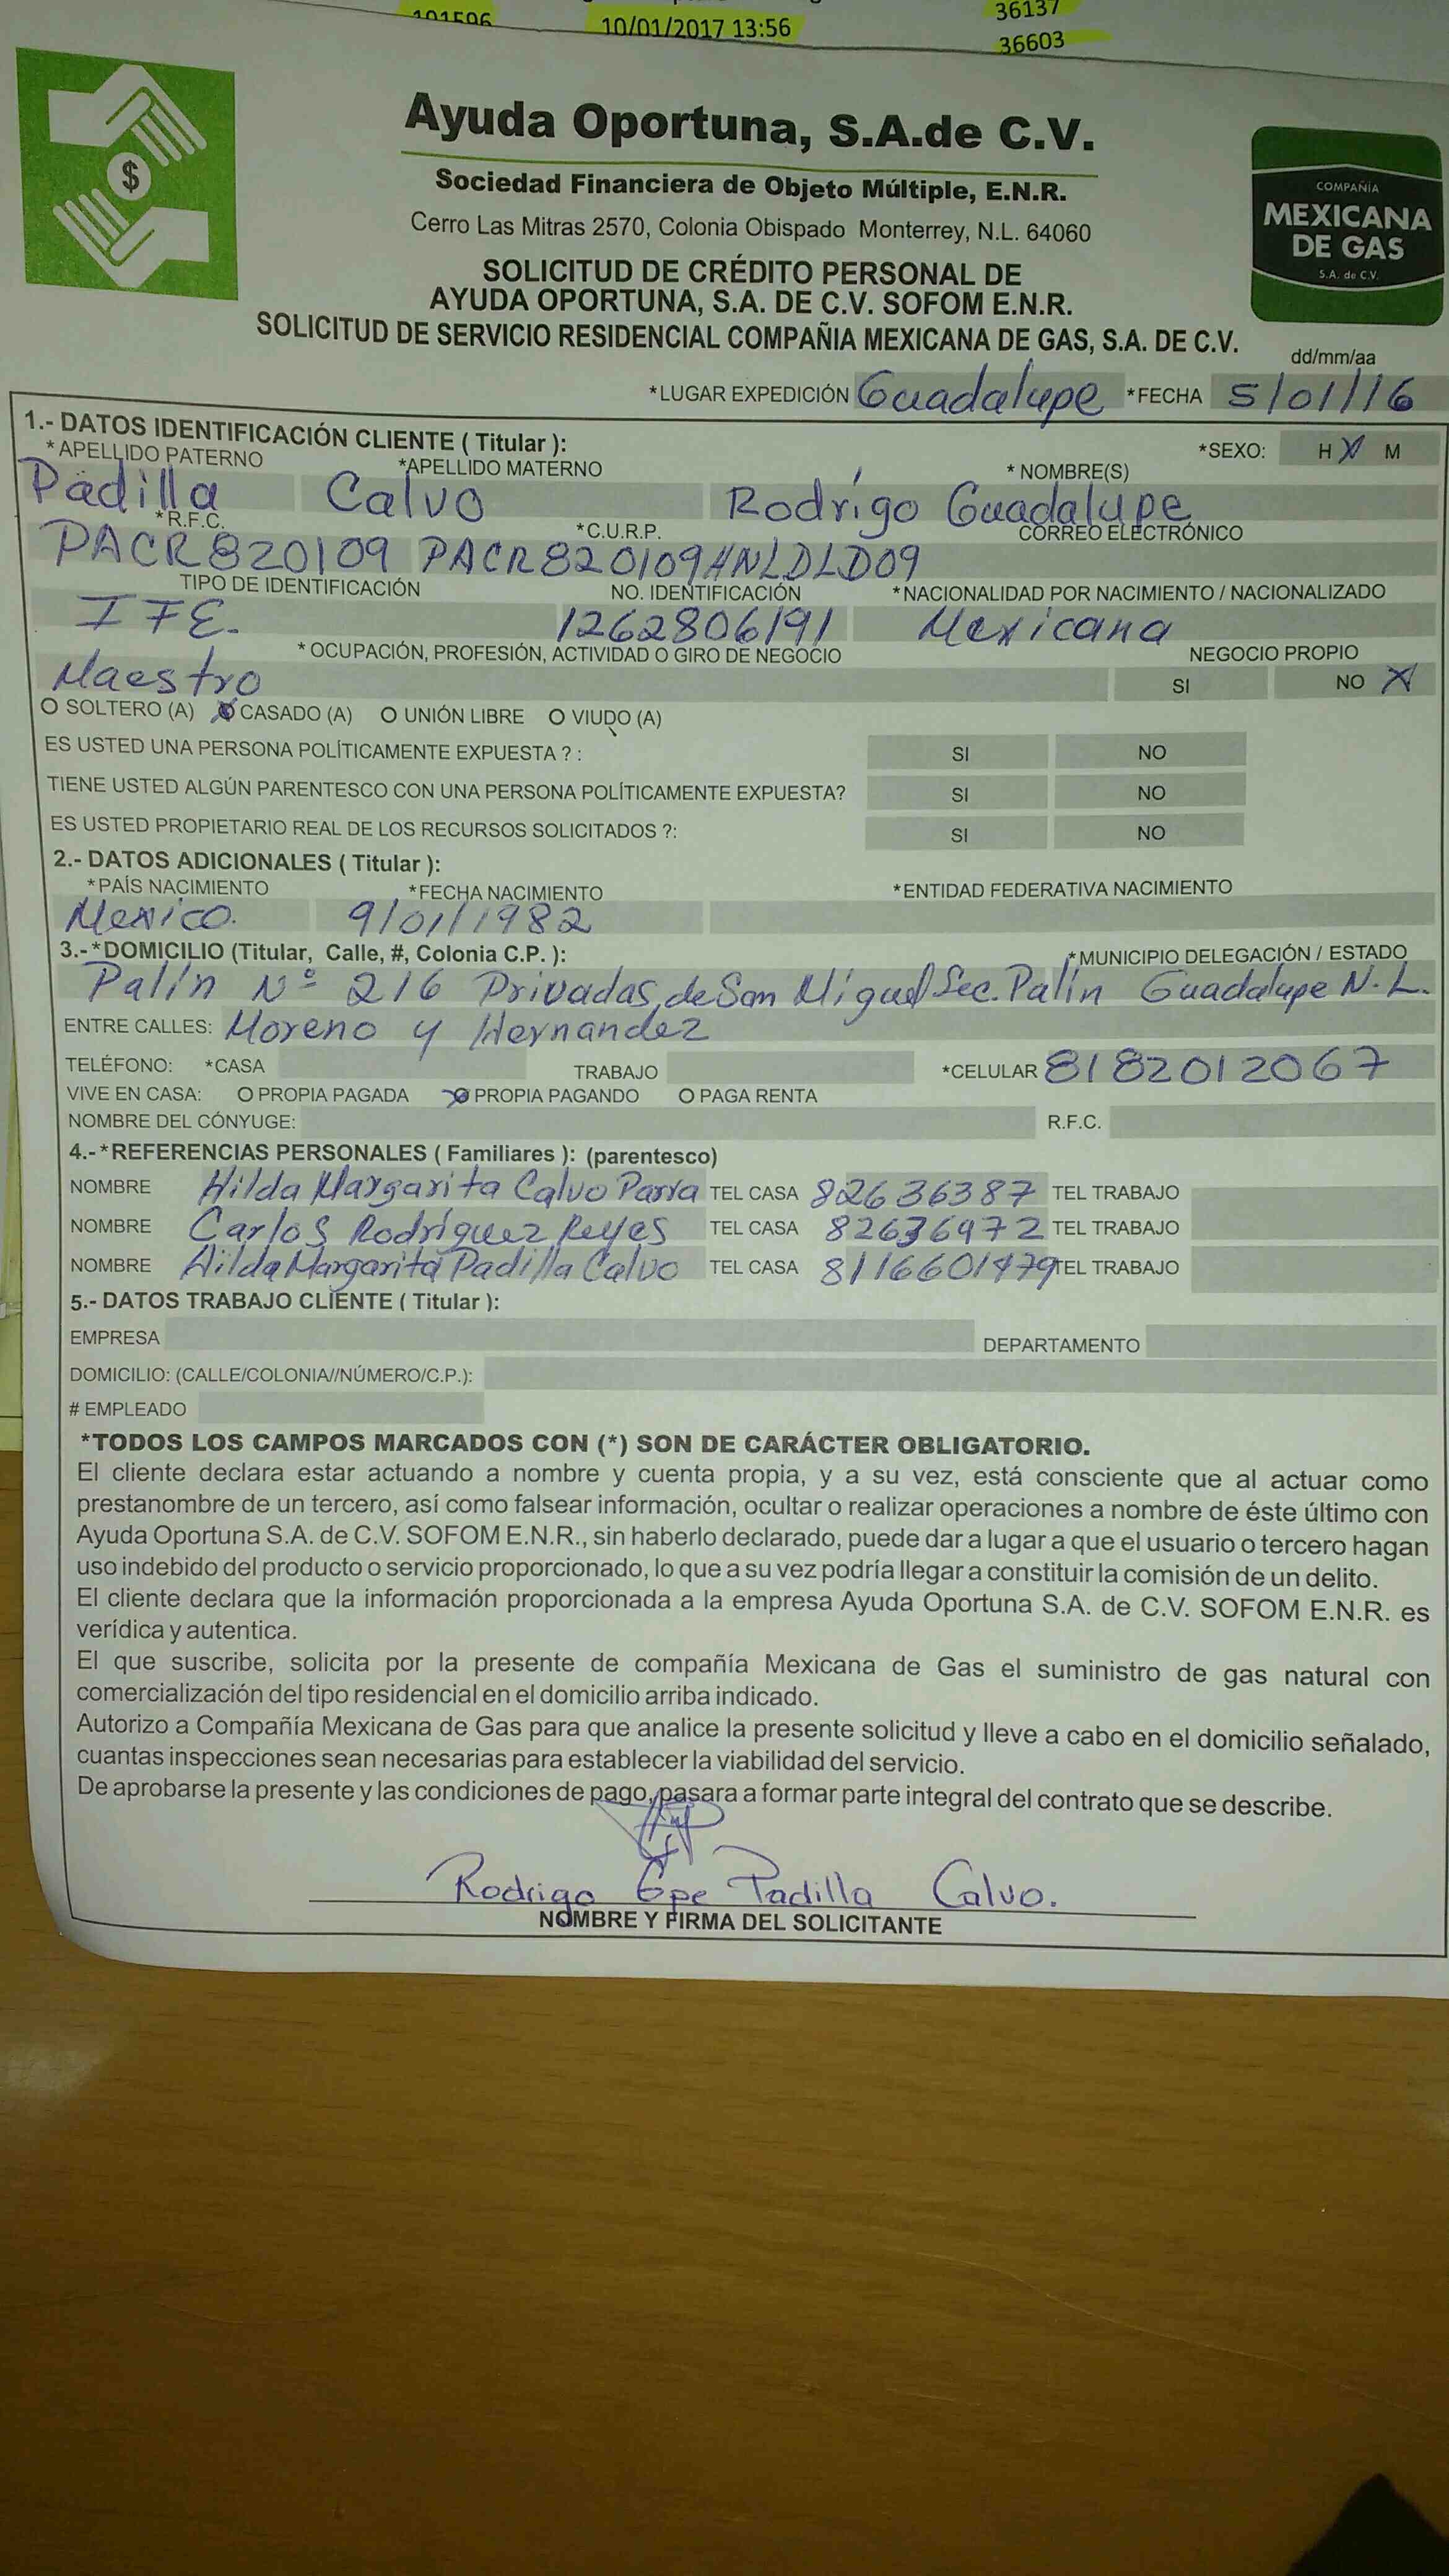 101596 10/01/2017 13:56 36137
36603
$
Ayuda Oportuna, S.A.de C.V.
Sociedad Financiera de Objeto Múltiple, E.N.R.
Cerro Las Mitras 2570, Colonia Obispado Monterrey, N.L. 64060
COMPAÑÍA
MEXICANA
DE GAS
S.A. de C.V.
SOLICITUD DE CRÉDITO PERSONAL DE
AYUDA OPORTUNA, S.A. DE C.V. SOFOM E.N.R.
SOLICITUD DE SERVICIO RESIDENCIAL COMPAÑIA MEXICANA DE GAS, S.A. DE C.V.
dd/mm/aa
*LUGAR EXPEDICIÓN Guadalupe *FECHA 5/01/16
1.- DATOS IDENTIFICACIÓN CLIENTE ( Titular ):
*SEXO: H X M
*APELLIDO PATERNO *APELLIDO MATERNO * NOMBRE(S)
Padilla Calvo Rodrígo Guadalupe
*R.F.C. *C.U.R.P. CORREO ELECTRÓNICO
PACR820109 PACR820109HNLDLD09
TIPO DE IDENTIFICACIÓN NO. IDENTIFICACIÓN *NACIONALIDAD POR NACIMIENTO / NACIONALIZADO
IFE. 1262806191 Mexicana
* OCUPACIÓN, PROFESIÓN, ACTIVIDAD O GIRO DE NEGOCIO NEGOCIO PROPIO
Maestro SI NO X
O SOLTERO (A) O CASADO (A) O UNIÓN LIBRE O VIUDO (A)
ES USTED UNA PERSONA POLÍTICAMENTE EXPUESTA ? : SI NO
TIENE USTED ALGÚN PARENTESCO CON UNA PERSONA POLÍTICAMENTE EXPUESTA? SI NO
ES USTED PROPIETARIO REAL DE LOS RECURSOS SOLICITADOS ?: SI NO
2.- DATOS ADICIONALES ( Titular ):
*PAÍS NACIMIENTO *FECHA NACIMIENTO *ENTIDAD FEDERATIVA NACIMIENTO
Mexico. 9/01/1982
3.-*DOMICILIO (Titular, Calle, #, Colonia C.P. ): *MUNICIPIO DELEGACIÓN / ESTADO
Palín Nº 216 Privadas de San Miguel Sec. Palín Guadalupe N.L.
ENTRE CALLES: Moreno y Hernandez
TELÉFONO: *CASA TRABAJO *CELULAR 8182012067
VIVE EN CASA: O PROPIA PAGADA O PROPIA PAGANDO O PAGA RENTA
NOMBRE DEL CÓNYUGE: R.F.C.
4.-*REFERENCIAS PERSONALES ( Familiares ): (parentesco)
NOMBRE Hilda Margarita Calvo Parra TEL CASA 82636387 TEL TRABAJO
NOMBRE Carlos Rodríguez Reyes TEL CASA 82636972 TEL TRABAJO
NOMBRE Hilda Margarita Padilla Calvo TEL CASA 8116601479 TEL TRABAJO
5.- DATOS TRABAJO CLIENTE ( Titular ):
EMPRESA DEPARTAMENTO
DOMICILIO: (CALLE/COLONIA//NÚMERO/C.P.):
# EMPLEADO
*TODOS LOS CAMPOS MARCADOS CON (*) SON DE CARÁCTER OBLIGATORIO.
El cliente declara estar actuando a nombre y cuenta propia, y a su vez, está consciente que al actuar como
prestanombre de un tercero, así como falsear información, ocultar o realizar operaciones a nombre de éste último con
Ayuda Oportuna S.A. de C.V. SOFOM E.N.R., sin haberlo declarado, puede dar a lugar a que el usuario o tercero hagan
uso indebido del producto o servicio proporcionado, lo que a su vez podría llegar a constituir la comisión de un delito.
El cliente declara que la información proporcionada a la empresa Ayuda Oportuna S.A. de C.V. SOFOM E.N.R. es
verídica y autentica.
El que suscribe, solicita por la presente de compañía Mexicana de Gas el suministro de gas natural con
comercialización del tipo residencial en el domicilio arriba indicado.
Autorizo a Compañía Mexicana de Gas para que analice la presente solicitud y lleve a cabo en el domicilio señalado,
cuantas inspecciones sean necesarias para establecer la viabilidad del servicio.
De aprobarse la presente y las condiciones de pago, pasara a formar parte integral del contrato que se describe.
Rodrigo Gpe Padilla Calvo.
NOMBRE Y FIRMA DEL SOLICITANTE